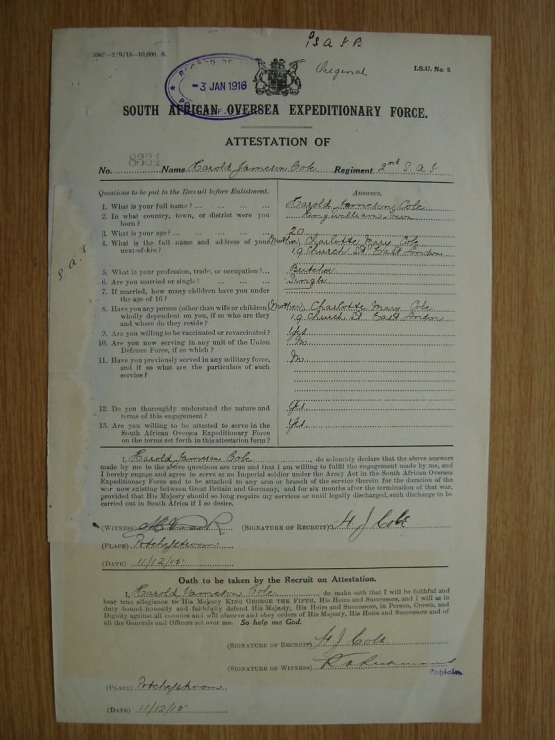 P S A I B
5067—2/9/15—10,000. S.
Original
I.S.U. No. 5
-3 JAN 1916
SOUTH AFRICAN OVERSEA EXPEDITIONARY FORCE.
ATTESTATION OF
No. 8334 Name Harold Jameson Cole Regiment 2nd S. A. I
Questions to be put to the Recruit before Enlistment. Answers.
1. What is your full name? ... Harold Jameson Cole
2. In what country, town, or district were you born? ... Kingwilliamstown
3. What is your age? ... 20
4. What is the full name and address of your next-of-kin? (Mother) Charlotte Mary Cole
19 Church St East London
S. A. I
5. What is your profession, trade, or occupation? ... Butcher
6. Are you married or single? ... Single
7. If married, how many children have you under the age of 16?
8. Have you any person (other than wife or children) wholly dependent on you, if so who are they and where do they reside? (Mother) Charlotte Mary Cole
19 Church St East London
9. Are you willing to be vaccinated or revaccinated? Yes
10. Are you now serving in any unit of the Union Defence Force, if so which? No
11. Have you previously served in any military force, and if so what are the particulars of such service? No
12. Do you thoroughly understand the nature and terms of this engagement? Yes
13. Are you willing to be attested to serve in the South African Oversea Expeditionary Force on the terms set forth in this attestation form? Yes
I, Harold Jameson Cole do solemnly declare that the above answers
made by me to the above questions are true and that I am willing to fulfil the engagement made by me, and
I hereby engage and agree to serve as Imperial soldier under the Army Act in the South African Oversea
Expeditionary Force and to be attached to any arm or branch of the service therein for the duration of the
war now existing between Great Britain and Germany, and for six months after the termination of that war,
provided that His Majesty should so long require my services or until legally discharged, such discharge to be
carried out in South Africa if I so desire.
(WITNESS) (SIGNATURE OF RECRUIT) H J Cole
(PLACE) Potchefstroom
(DATE) 11/12/15
Oath to be taken by the Recruit on Attestation.
I, Harold Jameson Cole do make oath that I will be faithful and
bear true allegiance to His Majesty KING GEORGE THE FIFTH, His Heirs and Successors, and I will as in
duty bound honestly and faithfully defend His Majesty, His Heirs and Successors, in Person, Crown, and
Dignity against all enemies and will observe and obey orders of His Majesty, His Heirs and Successors and of
all the Generals and Officers set over me. So help me God.
(SIGNATURE OF RECRUIT) H J Cole
(SIGNATURE OF WITNESS)
Captain.
(PLACE) Potchefstroom
(DATE) 11/12/15